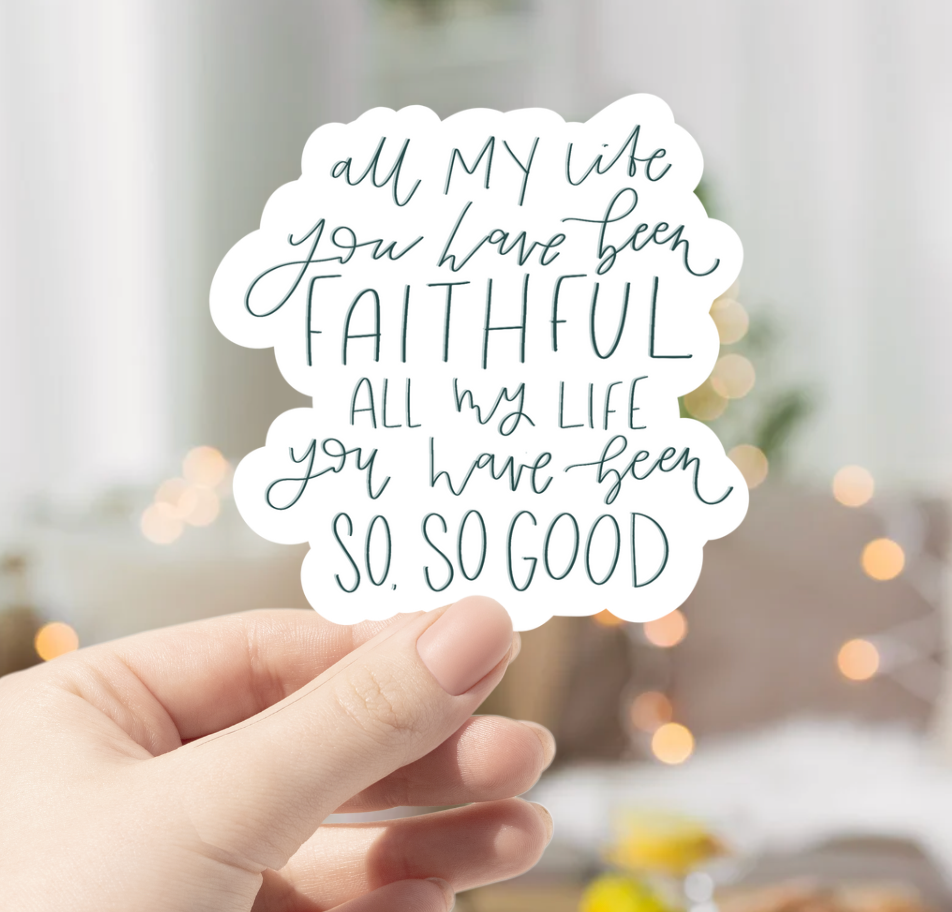 all MY life
you have been
FAITHFUL
ALL my LIFE
you have been
SO, SO GOOD